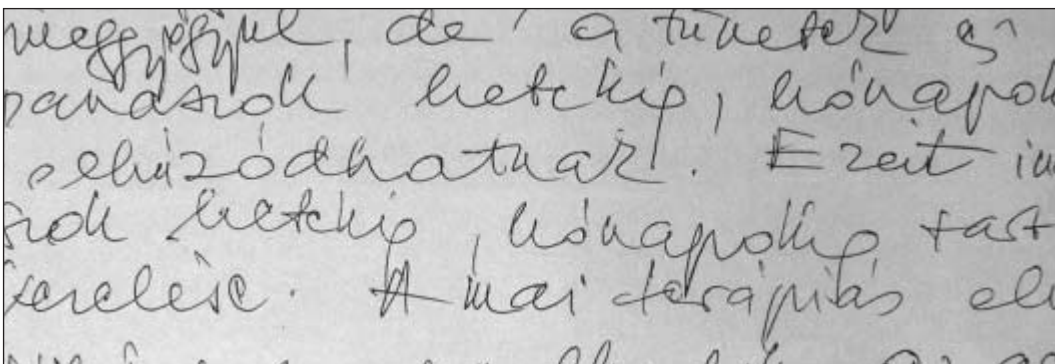 meggyógyul, de a tünetek és
panaszok hetekig, hónapok
elhúzódhatnak. Ezért
szok hetekig, hónapokig tart
kezelése. A mai terápiás el